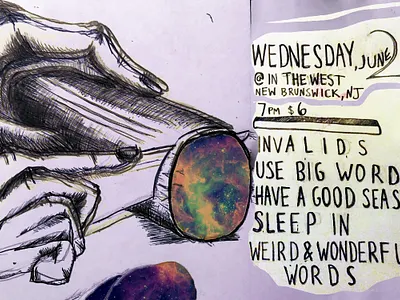 WEDNESDAY, JUNE 2
@ IN THE WEST
NEW BRUNSWICK, NJ
7PM $6
INVALIDS
USE BIG WORD
HAVE A GOOD SEAS
SLEEP IN
WEIRD & WONDERFU
WORDS